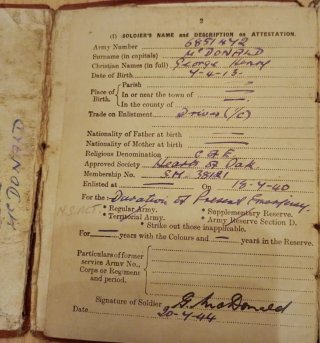 McDONALD
2
(I) SOLDIER'S NAME and DESCRIPTION on ATTESTATION.
Army Number 6851472
Surname (in capitals) McDONALD
Christian Names (in full) George Henry
Date of Birth 7-4-13.
Place of Birth.
Parish
In or near the town of
In the county of
Trade on Enlistment Driver (I/C)
Nationality of Father at birth
Nationality of Mother at birth
Religious Denomination C of E.
Approved Society Hearts of Oak
Membership No. S.M. 38121
Enlisted at On 18-7-40
For the:— Duration of Present Emergency.
* Regular Army. * Supplementary Reserve.
* Territorial Army. * Army Reserve Section D.
* Strike out those inapplicable.
For years with the Colours and years in the Reserve.
Particulars of former
service Army No.,
Corps or Regiment
and period.
Signature of Soldier G. McDonald
Date 20-7-44